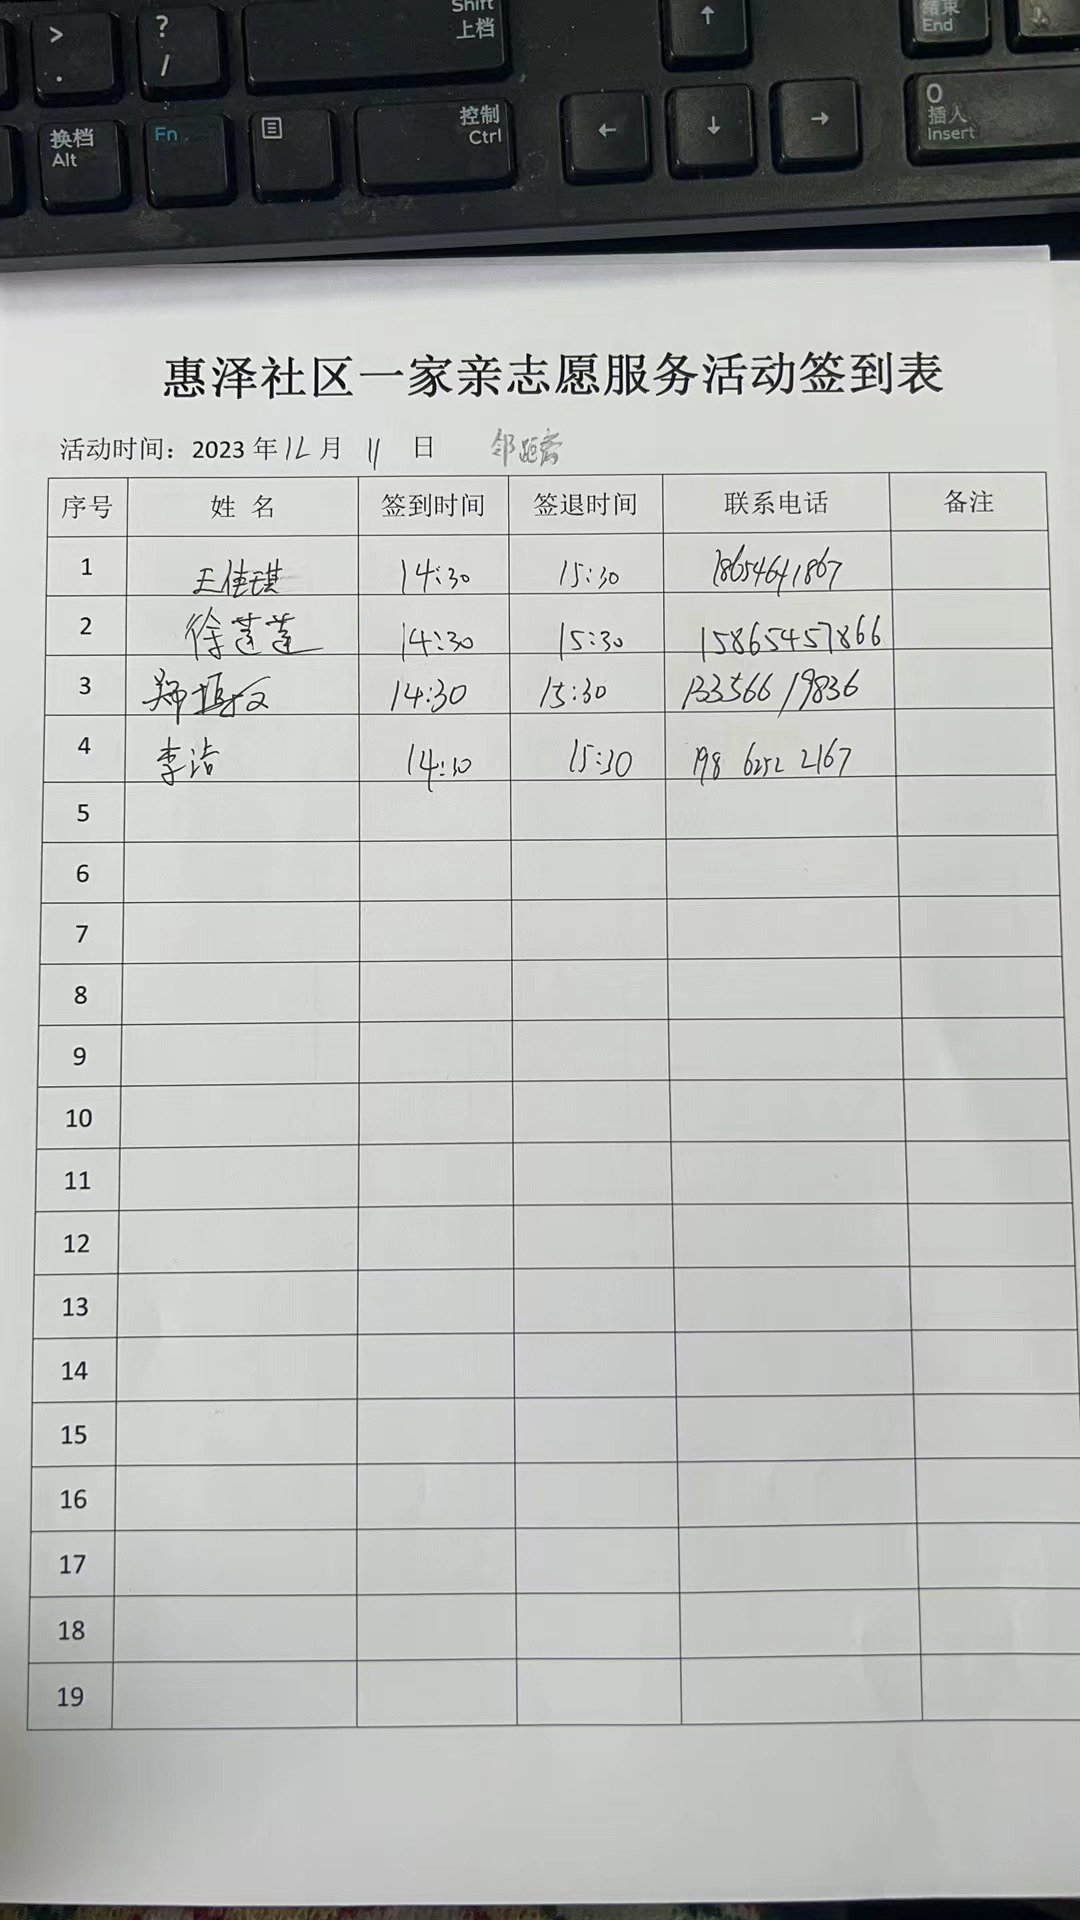 > ? Shift 上档 ↑ 结束 End
. /
换档 Alt Fn 控制 Ctrl ← ↓ → 0 插入 Insert
惠泽社区一家亲志愿服务活动签到表
活动时间：2023 年 12 月 11 日
序号 姓 名 签到时间 签退时间 联系电话 备注
1 王佳琪 14:30 15:30 18654641867
2 徐莲莲 14:30 15:30 15865457866
3 郑 14:30 15:30 13356619836
4 李洁 14:30 15:30 198 6252 2167
5
6
7
8
9
10
11
12
13
14
15
16
17
18
19